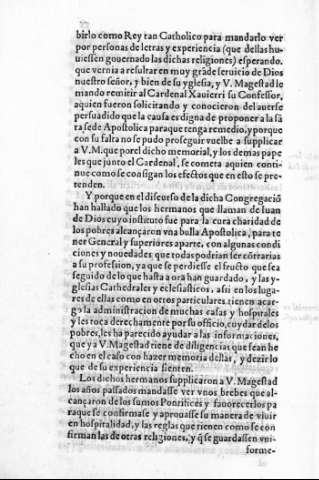 birlo como Rey tan Catholico para mandarlo ver
por personas de letras y experiencia (que dellas hu-
uiessen gouernado las dichas religiones) esperando.
que vernia a resultar en muy grāde seruicio de Dios
nuestro señor, y bien de su yglesia, y V. Magestad le
mando remitir al Cardenal Xauierri su Confessor,
aquien fueron solicitando y conocieron del auerse
persuadido que la causa es digna de proponer a la sā
ta sede Apostolica paraque tenga remedio, y porque
con su falta no se pudo proseguir vuelbe a supplicar
a V.M. que por el dicho memorial, y los demas pape
les que junto el Cardenal, se cometa aquien conti-
nue como se consigan los efectos que en esto se pre-
tenden.
Y porque en el discurso de la dicha Congregació
han hallado que los hermanos que llaman de Iuan
de Dios cuyo instituto fue para la cura charidad de
los pobres alcançaron vna bulla Apostolica, para te
ner General y superiores aparte, con algunas condi
ciones y nouedades que todas podrian ser cōtrarias
a su professiion, ya que se perdiesse el fructo que sea
seguido de lo que hasta a ora han guardado, y las y-
glesias Cathedrales y eclesiasticos, asi en los luga-
res de ellas como en otros particulares tienen acar-
go la administracion de muchas casas y hospitales
y les toca derechamente por su officio, cuydar de los
pobres, les ha parecido ayudar a las informaciones,
que ya V. Magestad tiene de diligencias que sean he
cho en el caso con hazer memoria dellas, y dezirlo
que de su experiencia sienten.
Los dichos hermanos supplicaron a V. Magestad
los años passados mandasse ver vnos brebes que al-
cançaron de los sumos Pontifices y fauorecerlos pa
raque se confirmase y aprouasse su manera de viuir
en hospitalidad, y las reglas que tienen como se con
firman las de otras religiones, y q̄ se guardassen vni-
forme-